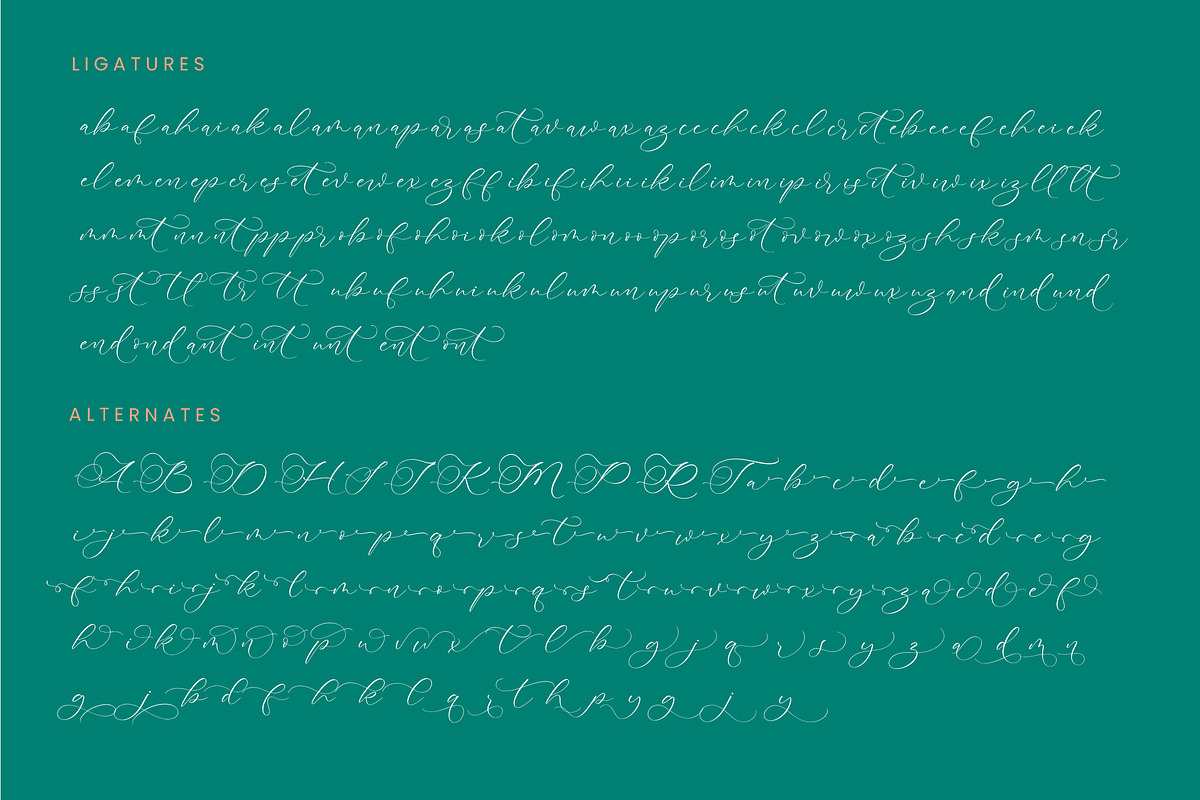 LIGATURES
abafahaiakalamanaparasatavawaxazccchckclcrctebeeefeheiek
elemeneperesetevewexezffibifihiiikiliminipirisitiviwixizllltt
mmmtnnntpppprobofohoiokolomonoooporosotovowoxozshsksmsnsr
ssst tl tr tt ubufuhuiukulumunupurusutuvuwuxuzandindund
endondant int unt ent ont
ALTERNATES
A B D H I J K M P R T a b c d e f g h
i j k l m n o p q r s t u v w x y z a b c d e g
f h i j k l m n o p q s t u v w x y z a c d e f
h i k m n o p u v w x t l b g j q r s y z a d m n
g j b d f h k l q r t h p y g j y